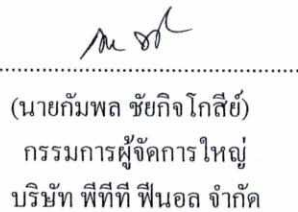 (นายกัมพล ชัยกิจโกสีย์)
กรรมการผู้จัดการใหญ่
บริษัท พีทีที ฟีนอล จำกัด